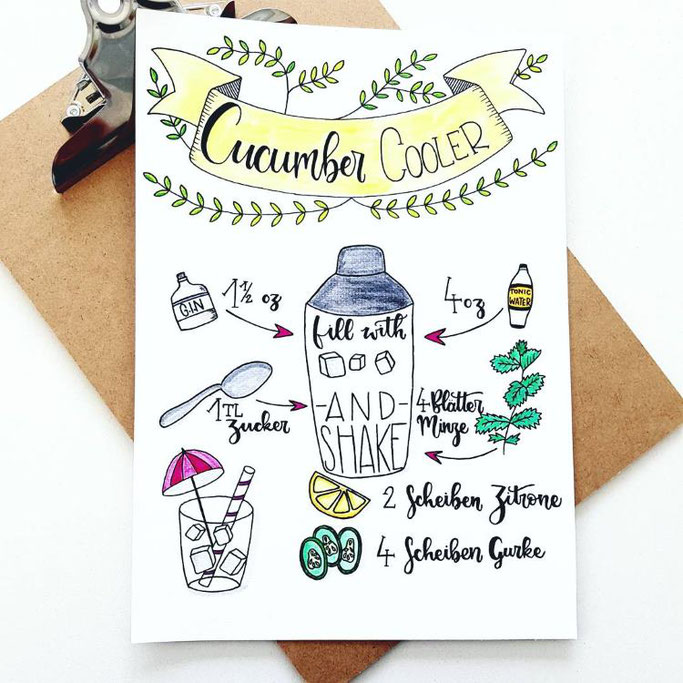 Cucumber COOLER
GIN
1 1/2 oz
fill with
4 oz
TONIC
WATER
-AND-
SHAKE
1 TL
Zucker
4 Blätter
Minze
2 Scheiben Zitrone
4 Scheiben Gurke